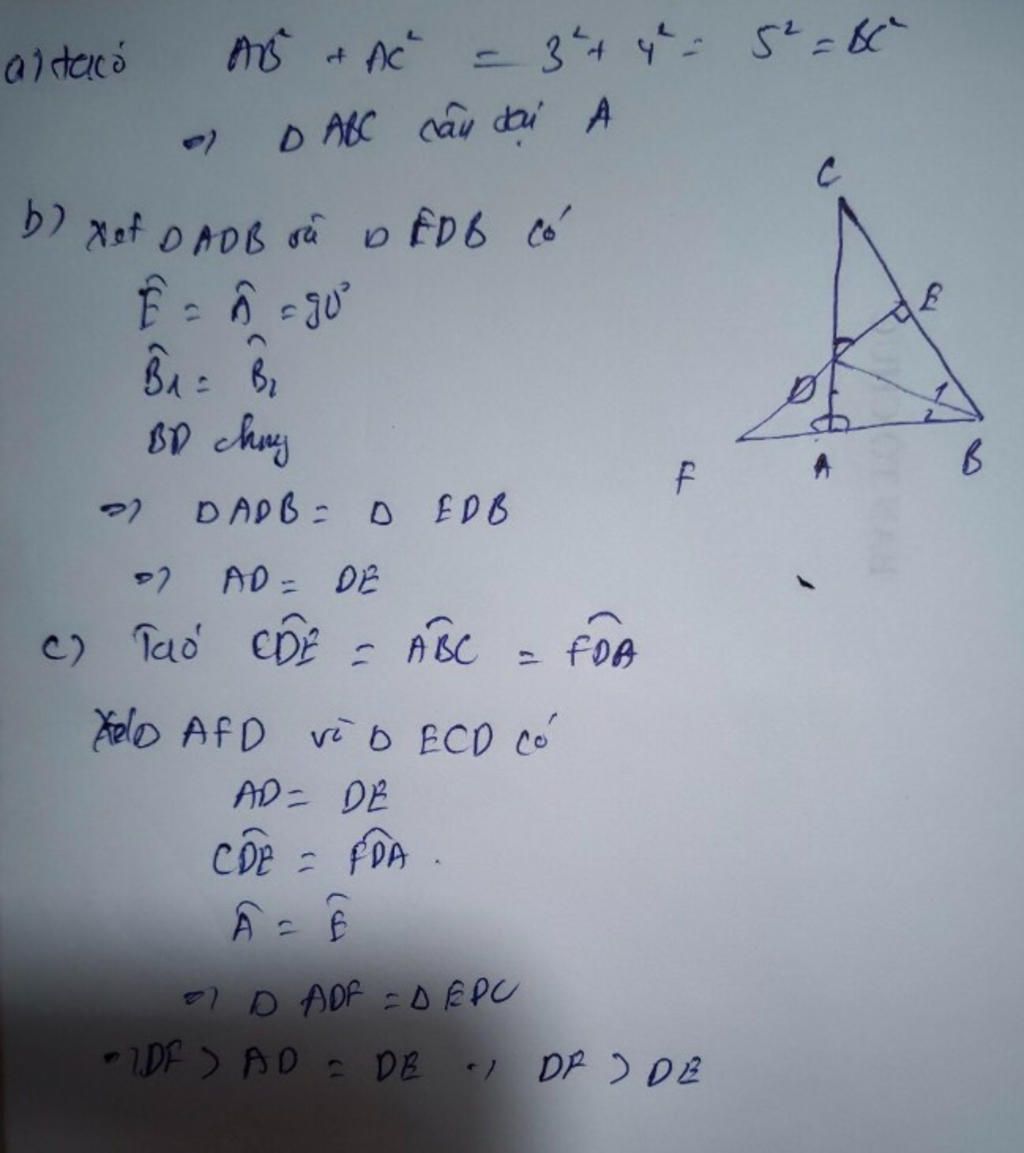 a) ta có AB² + AC² = 3² + 4² = 5² = BC²
=> Δ ABC cân tại A
b) Xét Δ ADB và Δ EDB có
Ê = Â = 90°
B̂1 = B̂2
BD chung
=> Δ ADB = Δ EDB
=> AD = DE
c) Ta có CD̂E = AB̂C = FD̂A
Xét Δ AFD và Δ ECD có
AD = DE
CD̂E = FD̂A.
Â = Ê
=> Δ ADF = Δ EDC
=> DF > AD = DE => DF > DE
C
E
D
1
2
F
A
B